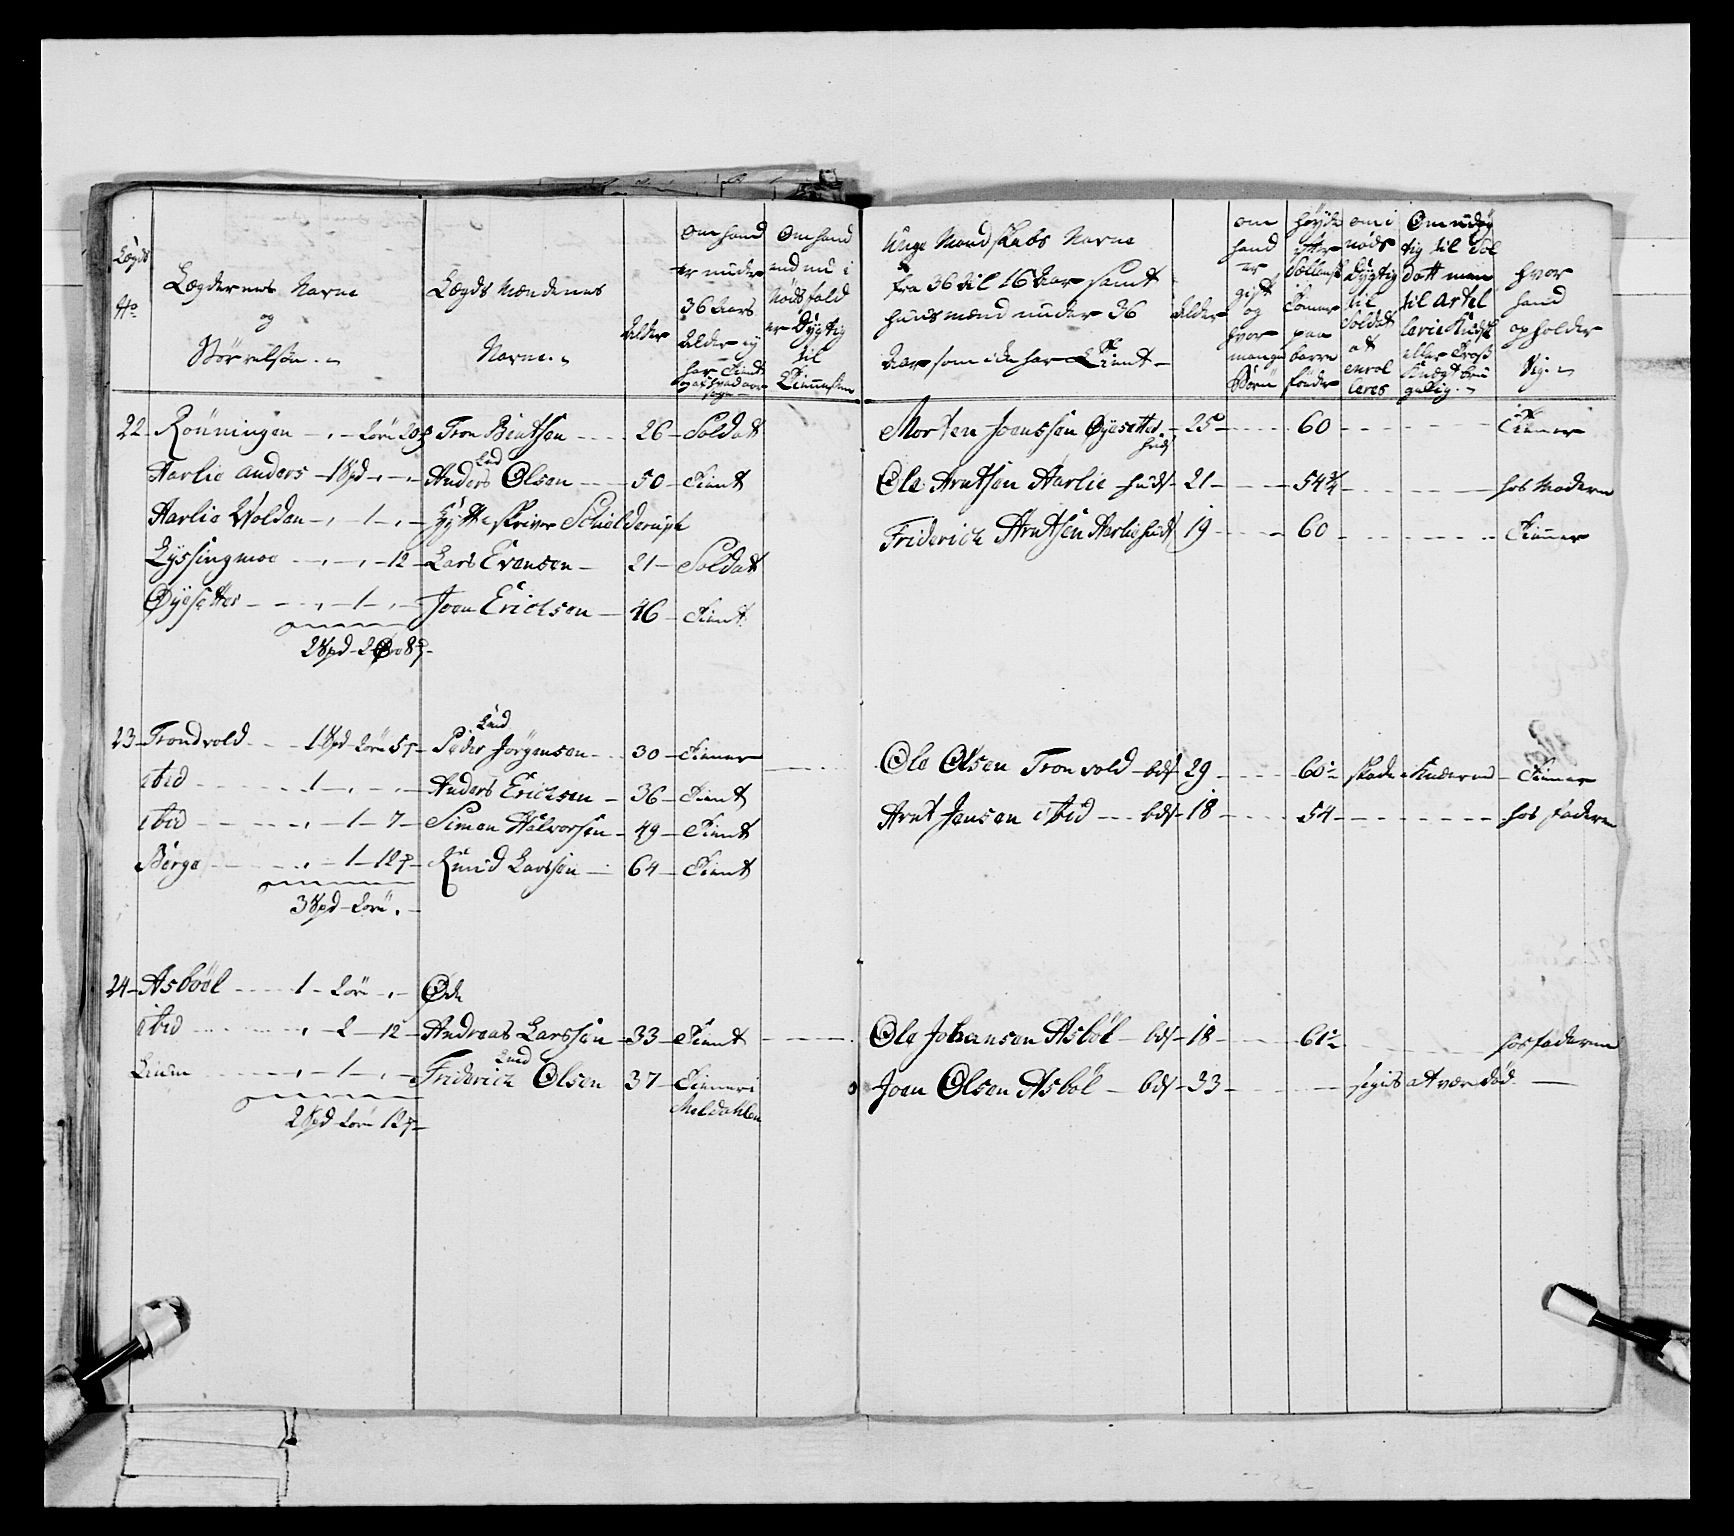 Lægds No
Lægdernes Navne og Störrelsen
Lægds Mændenes Navne
Alder
om hand er under 36 Aars Alder ej har Tient
Om hand end nu i Nöds fald er Dygtig til
Unge Mandskabs Navne
fra 36 til 16 Aar samt
huusmænd under 36
Aar som icke har Tient
Alder
om hand er gift og hvor mange Börn
höyde Tommer paa barre födder
om i nöds Dygtig til Soldat at enrolleres
Om udygtig til Soldatt men til Artillerie Kudsk eller Tross Knegt brugelig
hvor hand opholder sig
22 Rönningen - , - 2 öre 20 5 Tron Bentsen 26 Soldat
Morten Joenssen Øyesetter huus 25 60 Tiener
Aarlie anders - 1 Spd - , - , Anders Olsen 50 Tient
Ole Arntsen Aarlie huus 21 54 3/4 hos Moderen
Aarlie Wolden - , - 1 - , Hytteskriver Schielderup
Friderich Arntsen Aarlie huus 19 60 Tiener
Lyssingmoe - , - , - 12 Lars Evensen 21 Soldat
Øyesetter - , - 1 - , Joen Ericksen 46 Tient
2 Spd - 2 Øre 8
23 Trondvold 1 Spd 2 öre 5 Peder Jörgensen 30 Tiener
Ole Olsen Tronvold bds 29 60 skade Knæerne Tiener
ibid 1 - , - , Anders Ericksen 36 Tient
Arnt Jensen ibid bds 18 54 hos faderen
ibid , - 1 - 7 Simen Halvorsen 49 Tient
Berge , - 1 - 12 Knud Larssen 64 Tient
3 Spd
24 Asbööl 1 - 2 öre - , Öde
ibid , - 2 - 12 Andreas Larssen 33 Tient
Ole Johansen Asböl bds 18 61 1/2 hos faderen
, - 1 - , Friderich Olsen 37 Tiener i Meldahlen
Joen Olsen Asböl bds 33 siges at være död
2 Spd 2 öre 12